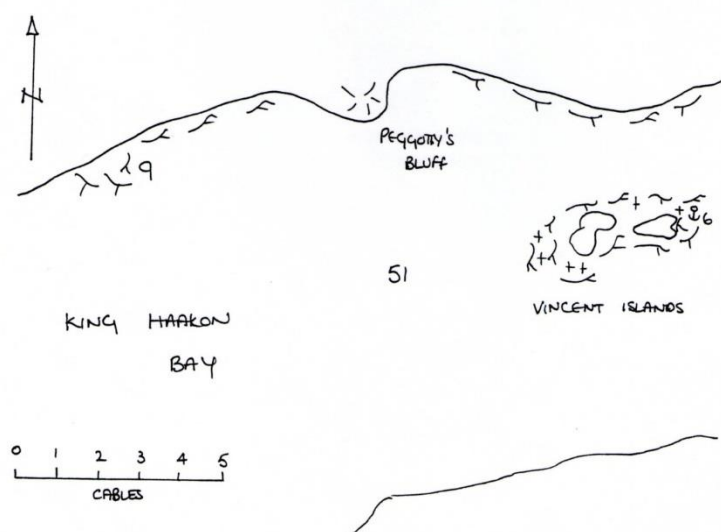 N
PEGGOTTY'S
BLUFF
9
6
51
VINCENT ISLANDS
KING HAAKON
BAY
0 1 2 3 4 5
CABLES